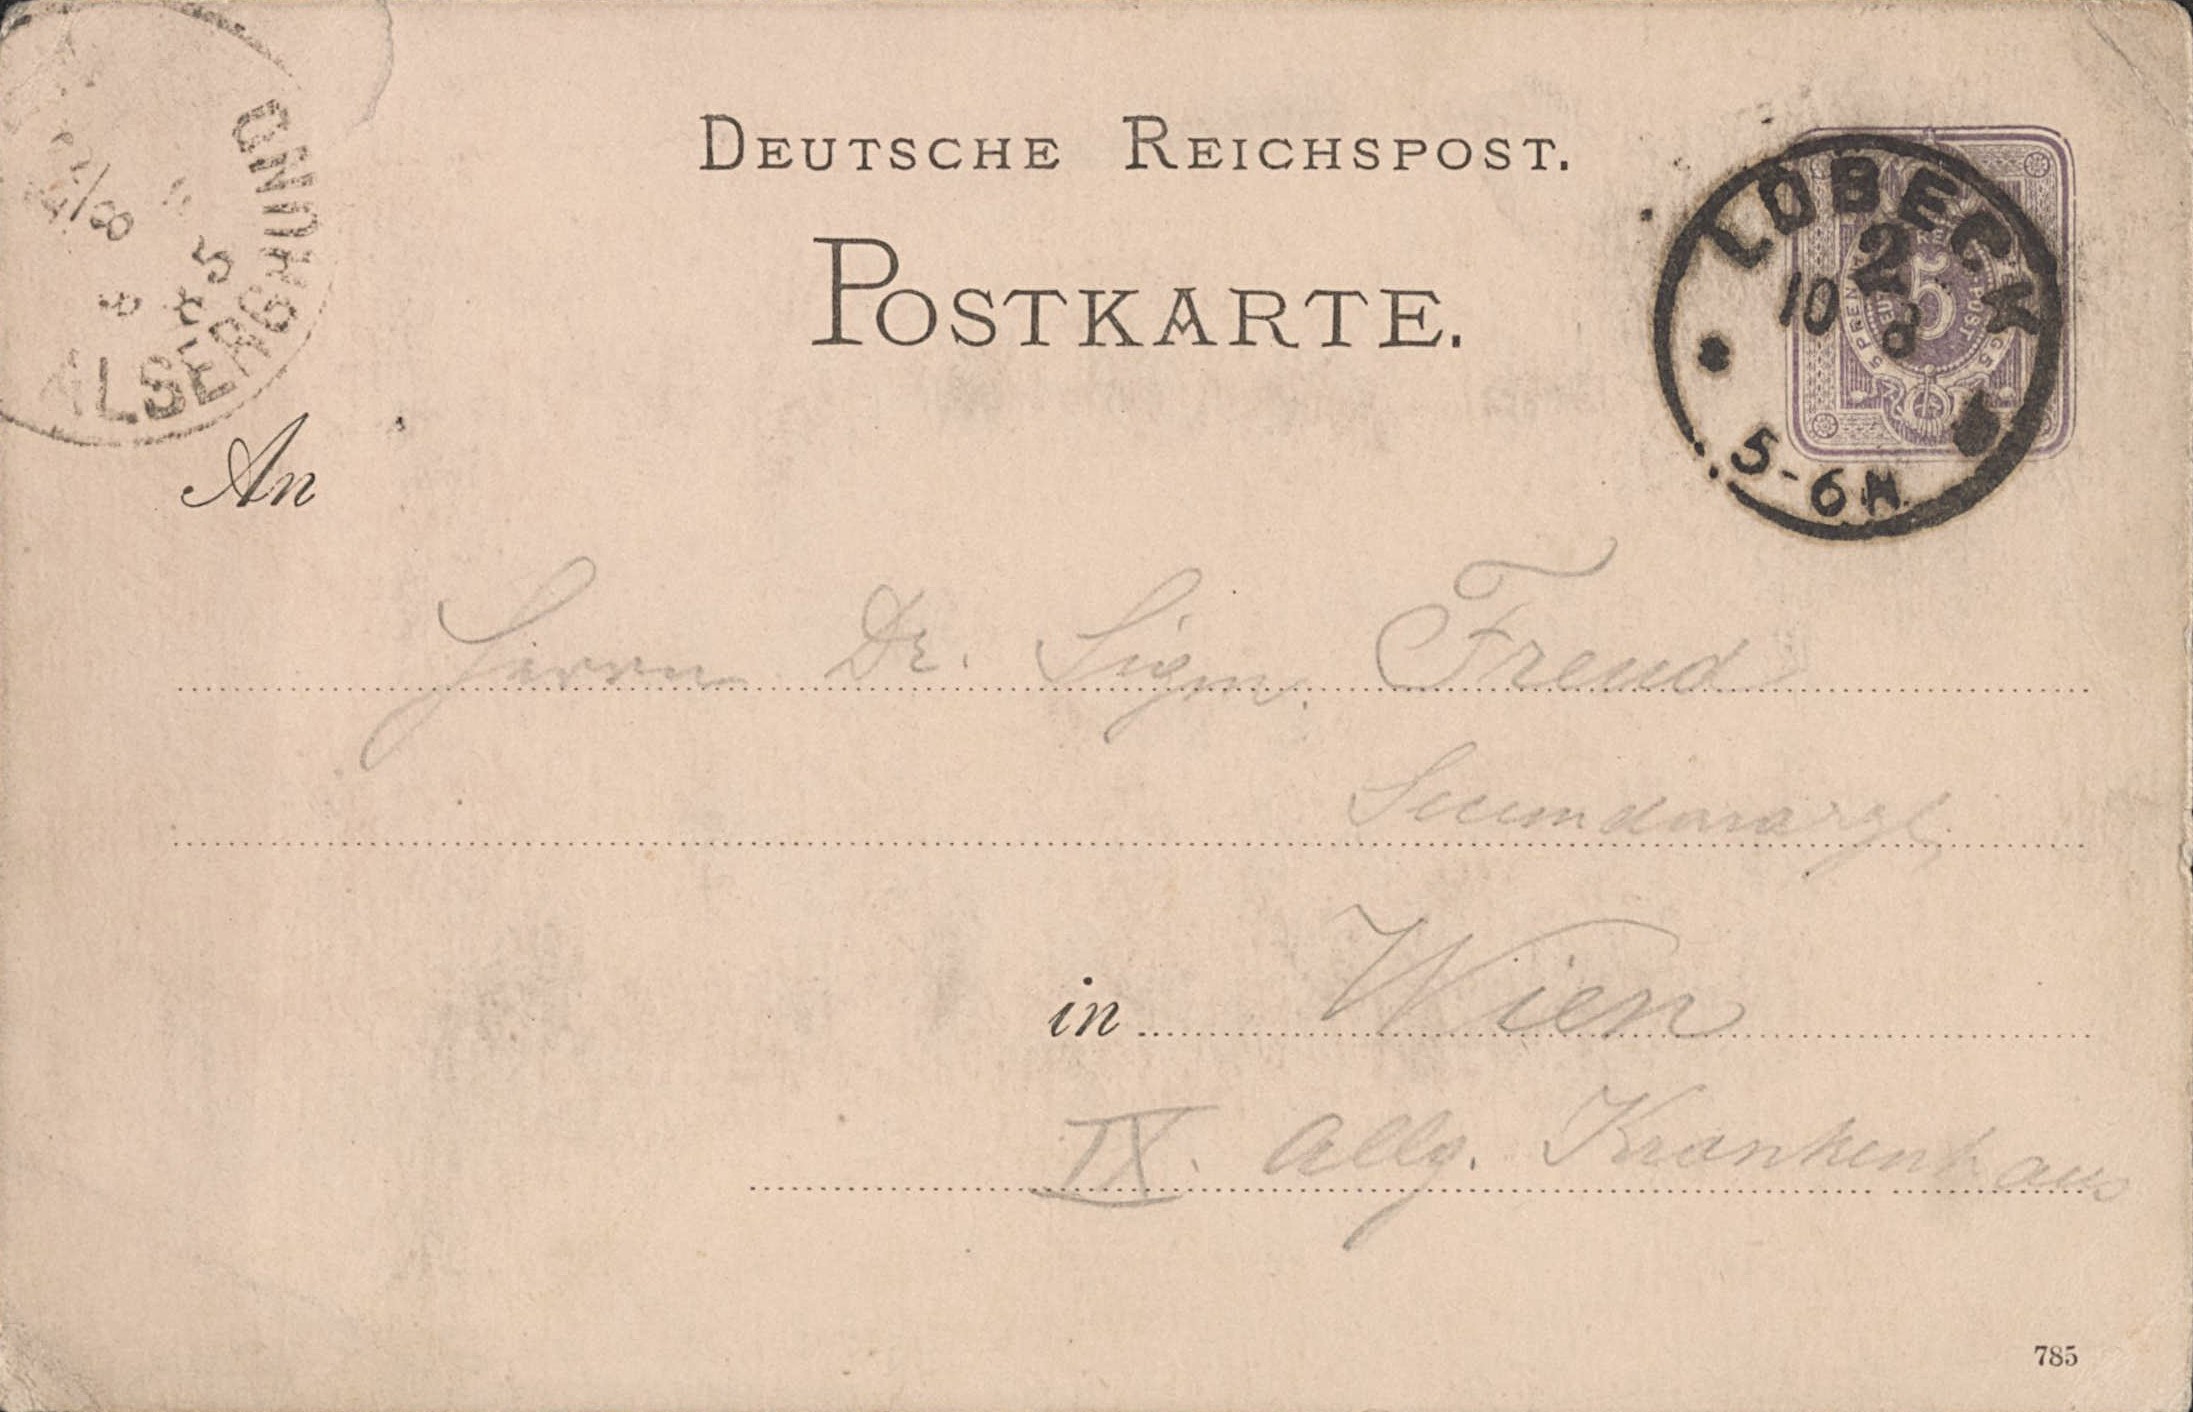 DEUTSCHE REICHSPOST.
POSTKARTE.
LÜBECK
2
10 8
5-6 N.
5
ALSERGRUND
8
An
Herrn Dr. Sigm. Freud
Secundararzt
in Wien
IX. Allg. Krankenhaus
785